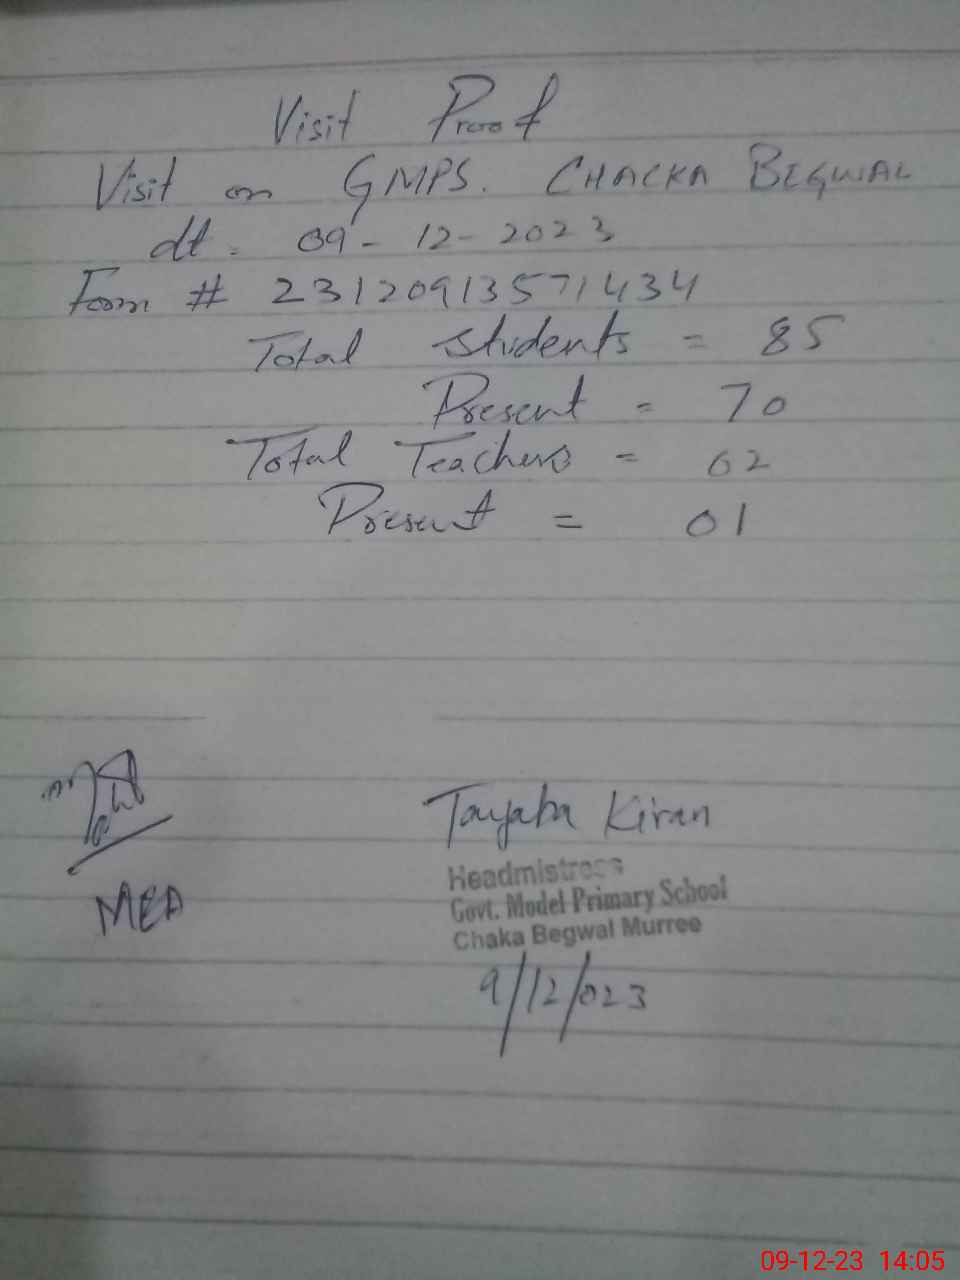 Visit Proof
Visit on GMPS. CHACKA BEGWAL
dt. 09-12-2023
Form # 23120913571434
Total students = 85
Present = 70
Total Teachers = 02
Present = 01
MEA
Tayaba Kiran
Headmistress
Govt. Model Primary School
Chaka Begwal Murree
9/12/023
09-12-23 14:05